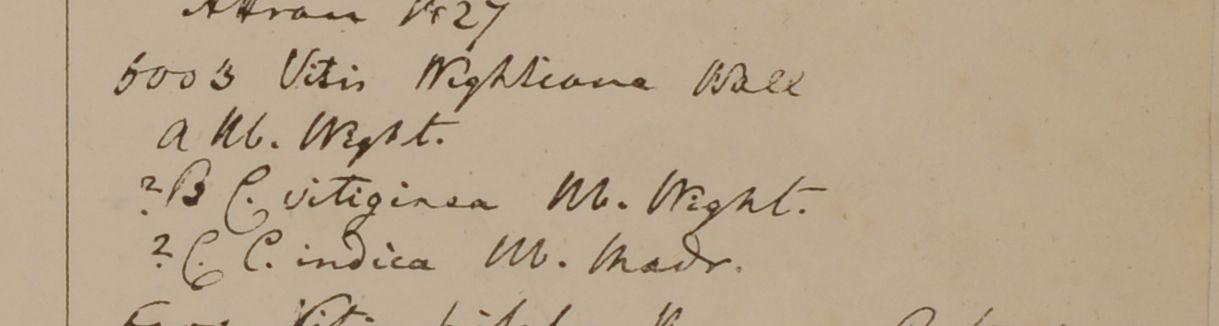 Attran 1827
6003 Vitis Wightiana Wall
a Hb. Wight.
?B C. vitiginea Hb. Wight.
?C. C. indica Hb. Madr.
Vitis